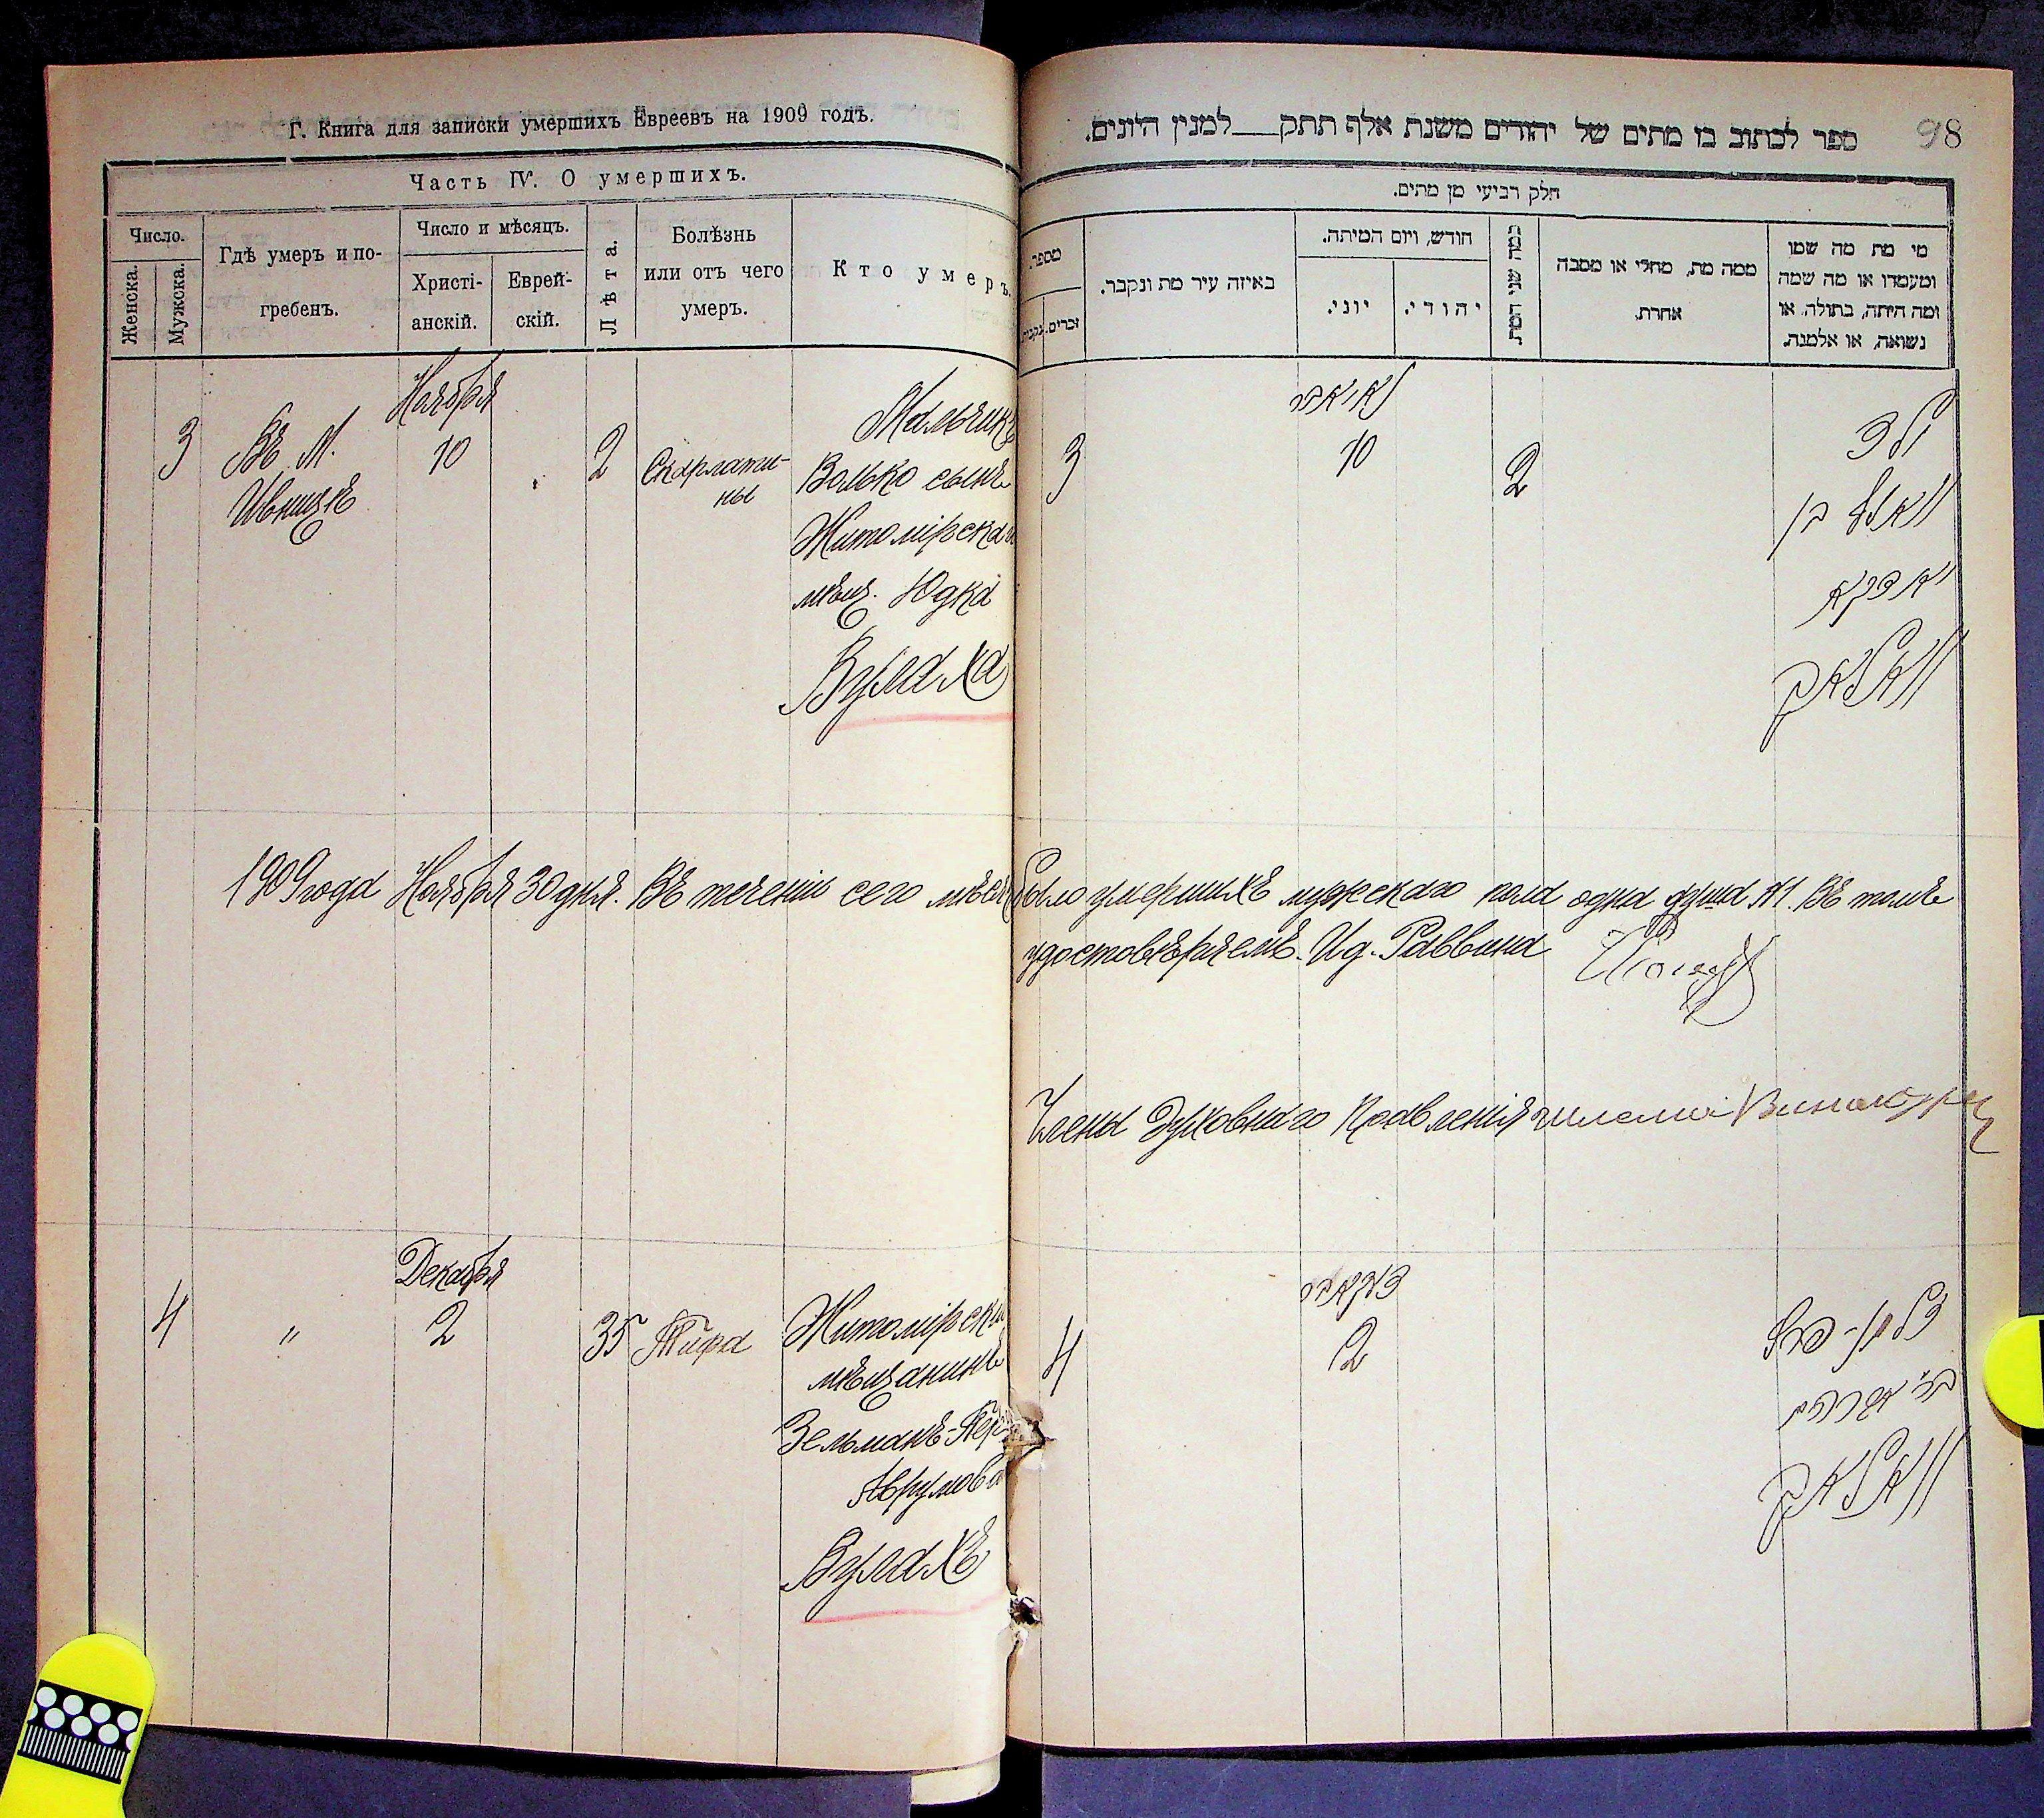 Г. Книга для записки умершихъ Евреевъ на 1909 годъ.
Часть IV. О умершихъ.
Число.
Женска.
Мужска.
Гдѣ умеръ и по-
гребенъ.
Число и мѣсяцъ.
Христі-
анскій.
Еврей-
скій.
Лѣта.
Болѣзнь
или отъ чего
умеръ.
Кто умеръ.
Ноября
3
Въ М.
Ивницѣ
10
2
Скарлати-
ны
Мальчикъ
Волько сынъ
Житомірскаго
мѣщ. Юдка
Вулаха
1909 года Ноября 30 дня. Въ теченіи сего мѣсяца было умершихъ мужскаго пола одна душа №1. Въ томъ
удостовѣряемъ. Ид. Раввина
Члены Духовнаго Правленія
Декабря
4
"
2
35
Тифа
Житомірскій
мѣщанинъ
Зельманъ-Пер
Аврумовъ
Вулахъ
98
ספר לכתוב בו מתים של יהודים משנת אלף תתק__למנין היונים.
חלק רביעי מן מתים.
מספר.
נקבות.
זכרים.
באיזה עיר מת ונקבר.
חודש, ויום המיתה.
יוני.
יהודי.
כמה שני המת.
ממה מת, מחלי או מסבה
אחרת.
מי מת מה שמו
ומעמדו או מה שמה
ומה היתה, בתולה או
נשואה, או אלמנה.
3
נאיאבר
10
2
ילד
וואלף בן
יאדקא
וואלאך
4
דעקאבר
2
זלמן-פרץ
בר' אברהם
וואלאך